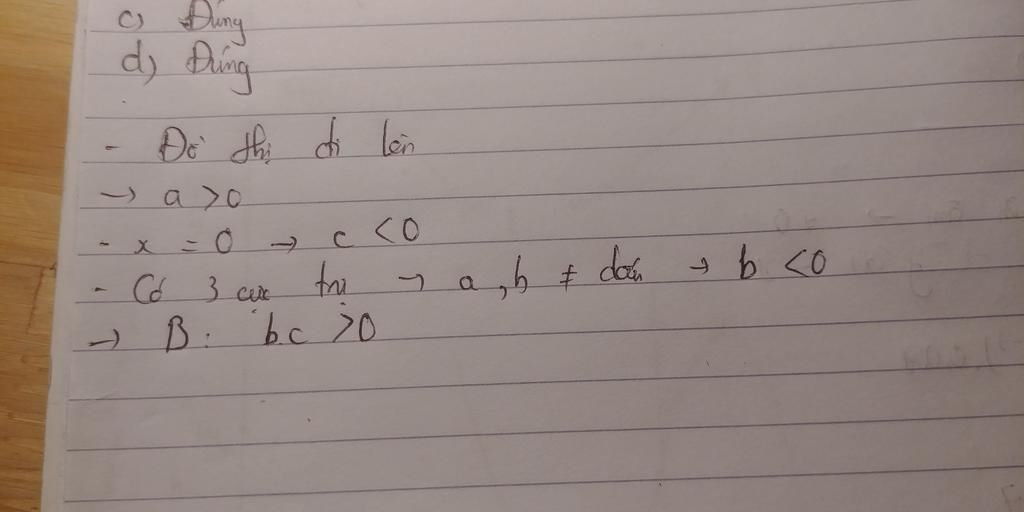 c) Đúng
d) Đúng
- Đồ thị đi lên
→ a > 0
- x = 0 → c < 0
- Có 3 cực trị → a, b ≠ dấu → b < 0
→ B: b.c > 0